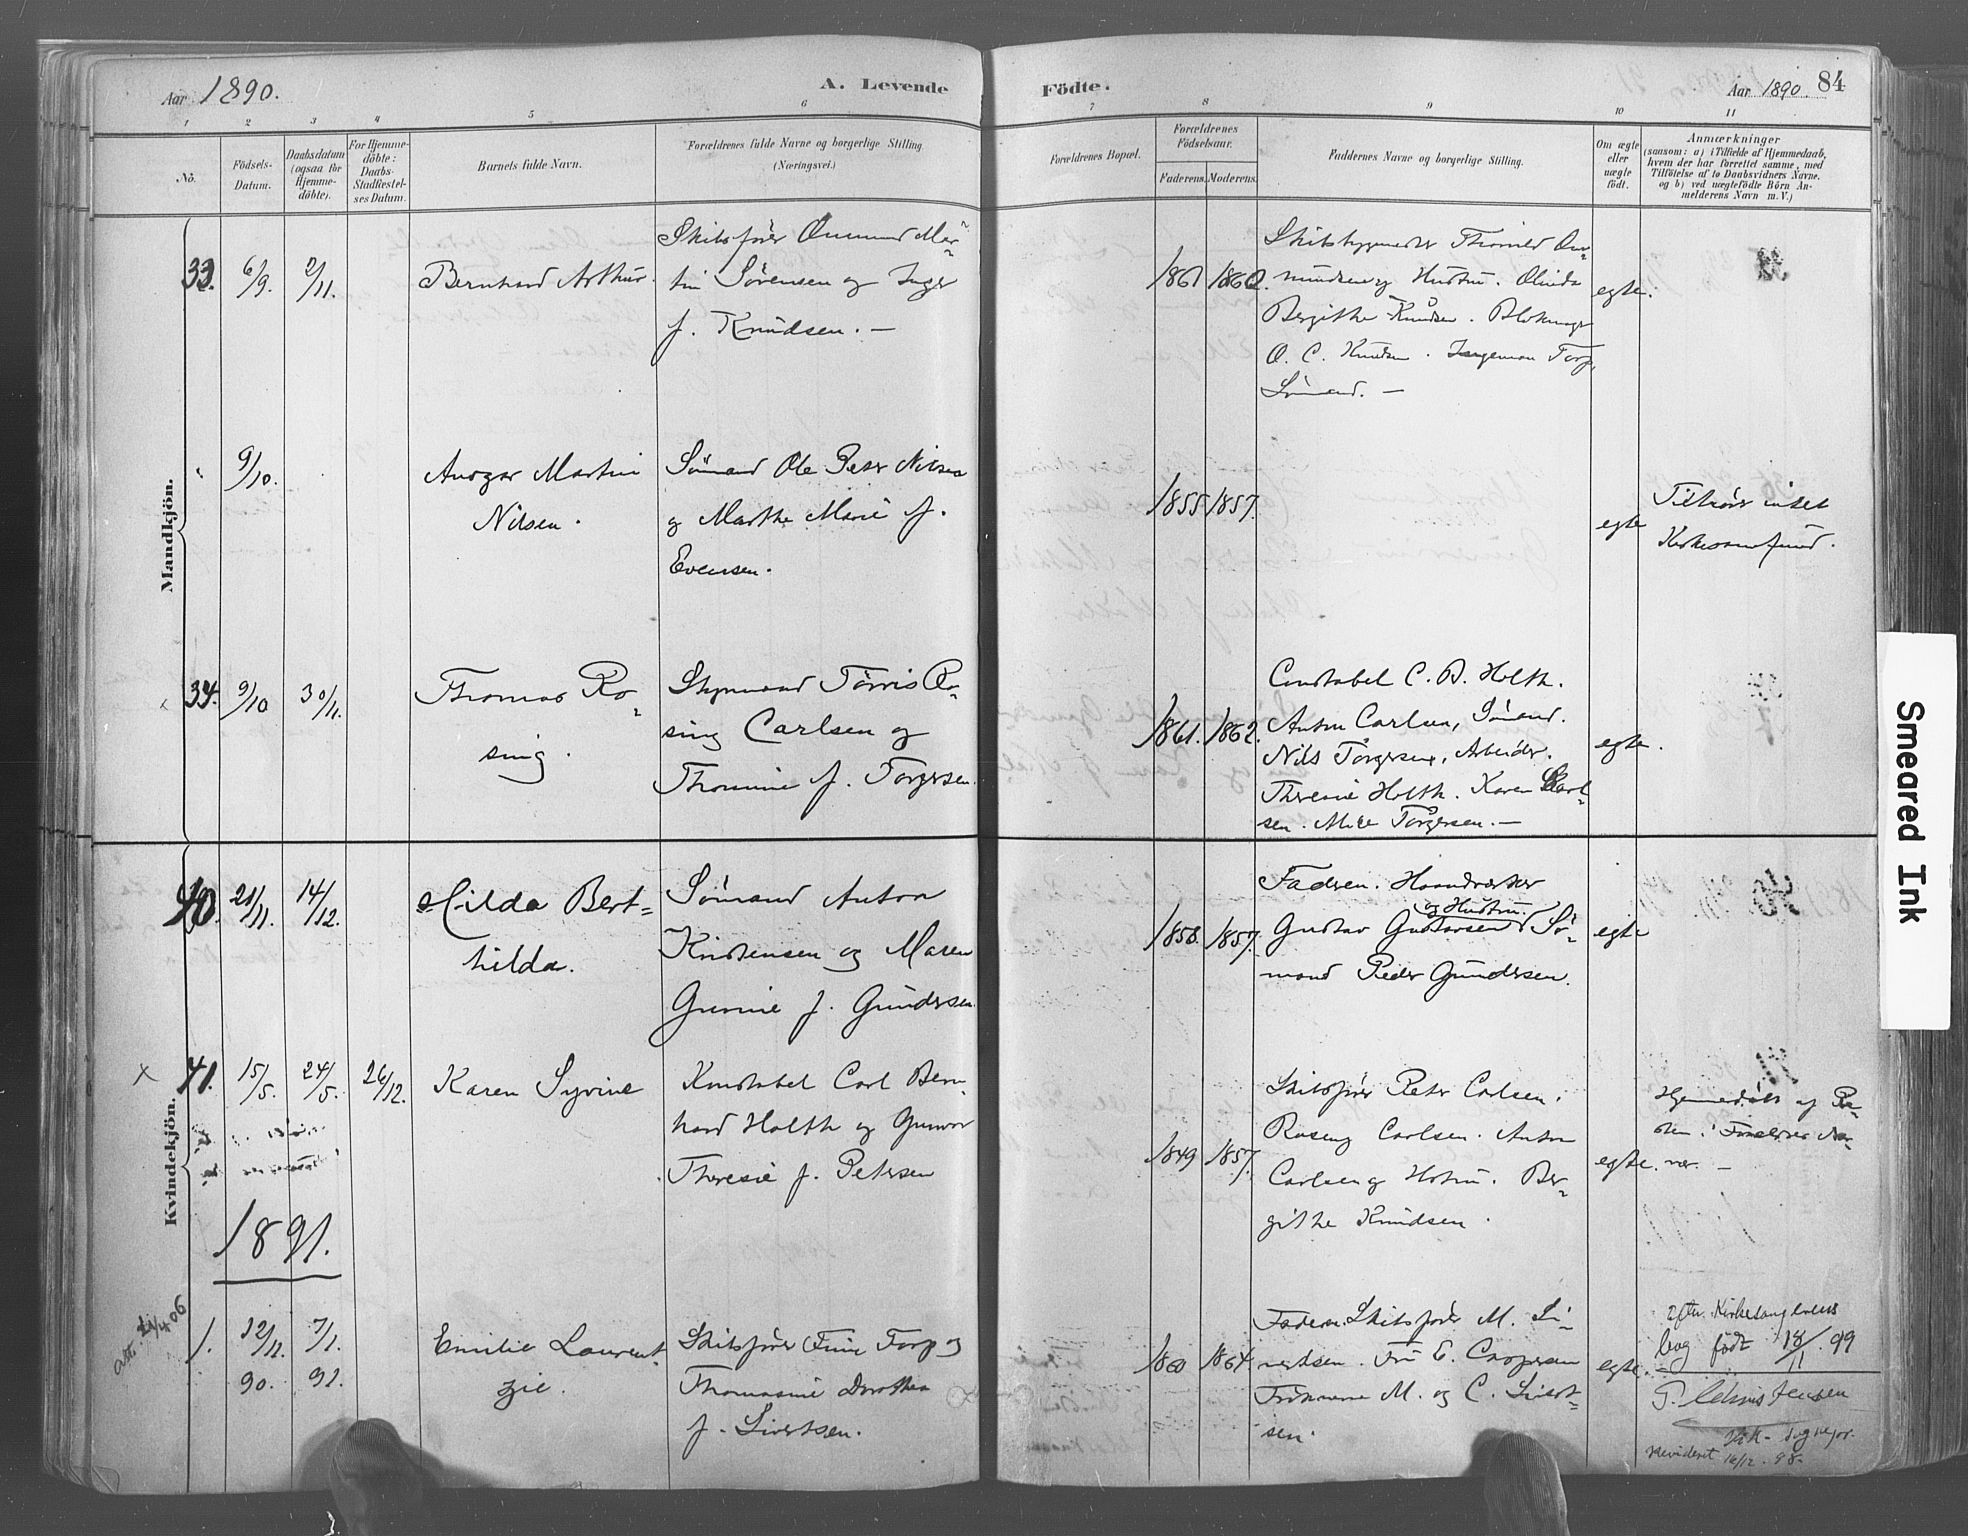 Aar 1890.
A. Levende
Födte.
Aar 1890.
84
1 2 3 4 5 6 7 8 9 10 11
No.
Födsels-
Datum.
Daabsdatum
(ogsaa for
Hjemme-
döbte).
For Hjemme-
döbte:
Daabs-
Stadfæstel-
ses Datum.
Barnets fulde Navn.
Forældrenes fulde Navne og borgerlige Stilling.
(Næringsvei.)
Forældrenes Bopæl.
Forældrenes
Födselsaar.
Faderens. Moderens.
Faddernes Navne og borgerlige Stilling.
Om ægte
eller
uægte
født.
Anmærkninger
(saasom: a) i Tilfælde af Hjemmedaab,
hvem der har forrettet samme, med
Tilföielse af to Daabsvidners Navne,
og b) ved uægtefödte Börn An-
melderens Navn m. V.)
Mandkjön.
33. 6/9. 2/11.
Bernhard Arthur.
Skibsfører Ommund Mar-
tin Sørensen og Inger
f. Knudsen. —
1861 1860.
Skibsbygmester Om-
mundsen og Hustru. Olinda
Bergithe Knudsen.
O. C. Knudsen. Ingeman Torp,
Sömand. —
egte.
9/10.
Ansgar Martin
Nilsen.
Sömand Ole Peter Nilsen
og Marthe Marie f.
Evensen.
1855 1857.
egte
Tilhører intet
Kirkesamfund.
34. 9/10 30/11.
Thomas Ro-
sing.
Styrmand Tørris Ro-
sing Carlsen og
Thomine f. Torgersen.
1861. 1862.
Constabel C. B. Holth.
Anton Carlsen, Sömand.
Nils Torgersen, Arbeider.
Theresie Holth. Karen Carl-
sen. Alice Torgersen. —
egte.
Kvindekjön.
40. 21/11. 14/12.
Hilda Bert-
hilda.
Sömand Anton
Kristensen og Maren
Gunnie f. Gundersen.
1858. 1857.
Faderen. Haandværker
og Hustru.
Gustav Gustavsen Sö-
mand Peder Gundersen.
egte
x 41. 15/5. 24/5. 26/12.
Karen Syvine
Konstabel Carl Bern-
hard Holth og Gunvor
Theresie f. Petersen
1849 1857.
Skibsfører Peter Carlsen.
Rosing Carlsen. Anton
Carlsen og Hustru. Ber-
githe Knudsen.
egte.
Hjemmedöbt af
1891.
att. 21/4 06
1. 12/12. 7/1.
90. 91.
Emilie Laurent-
zie.
Skibsfører Finn Torp og
Thomasine Dorothea
f. Sivertsen.
1860 1864.
Faderen. Skibsfører M. Si-
vertsen. Fru E. Caspersen
Frøknerne M. og C. Sivert-
sen.
egte.
Efter Kirkesangerens
bog født 18/11. 99
T. Christensen
Revideret 16/12. 98.
Smeared Ink